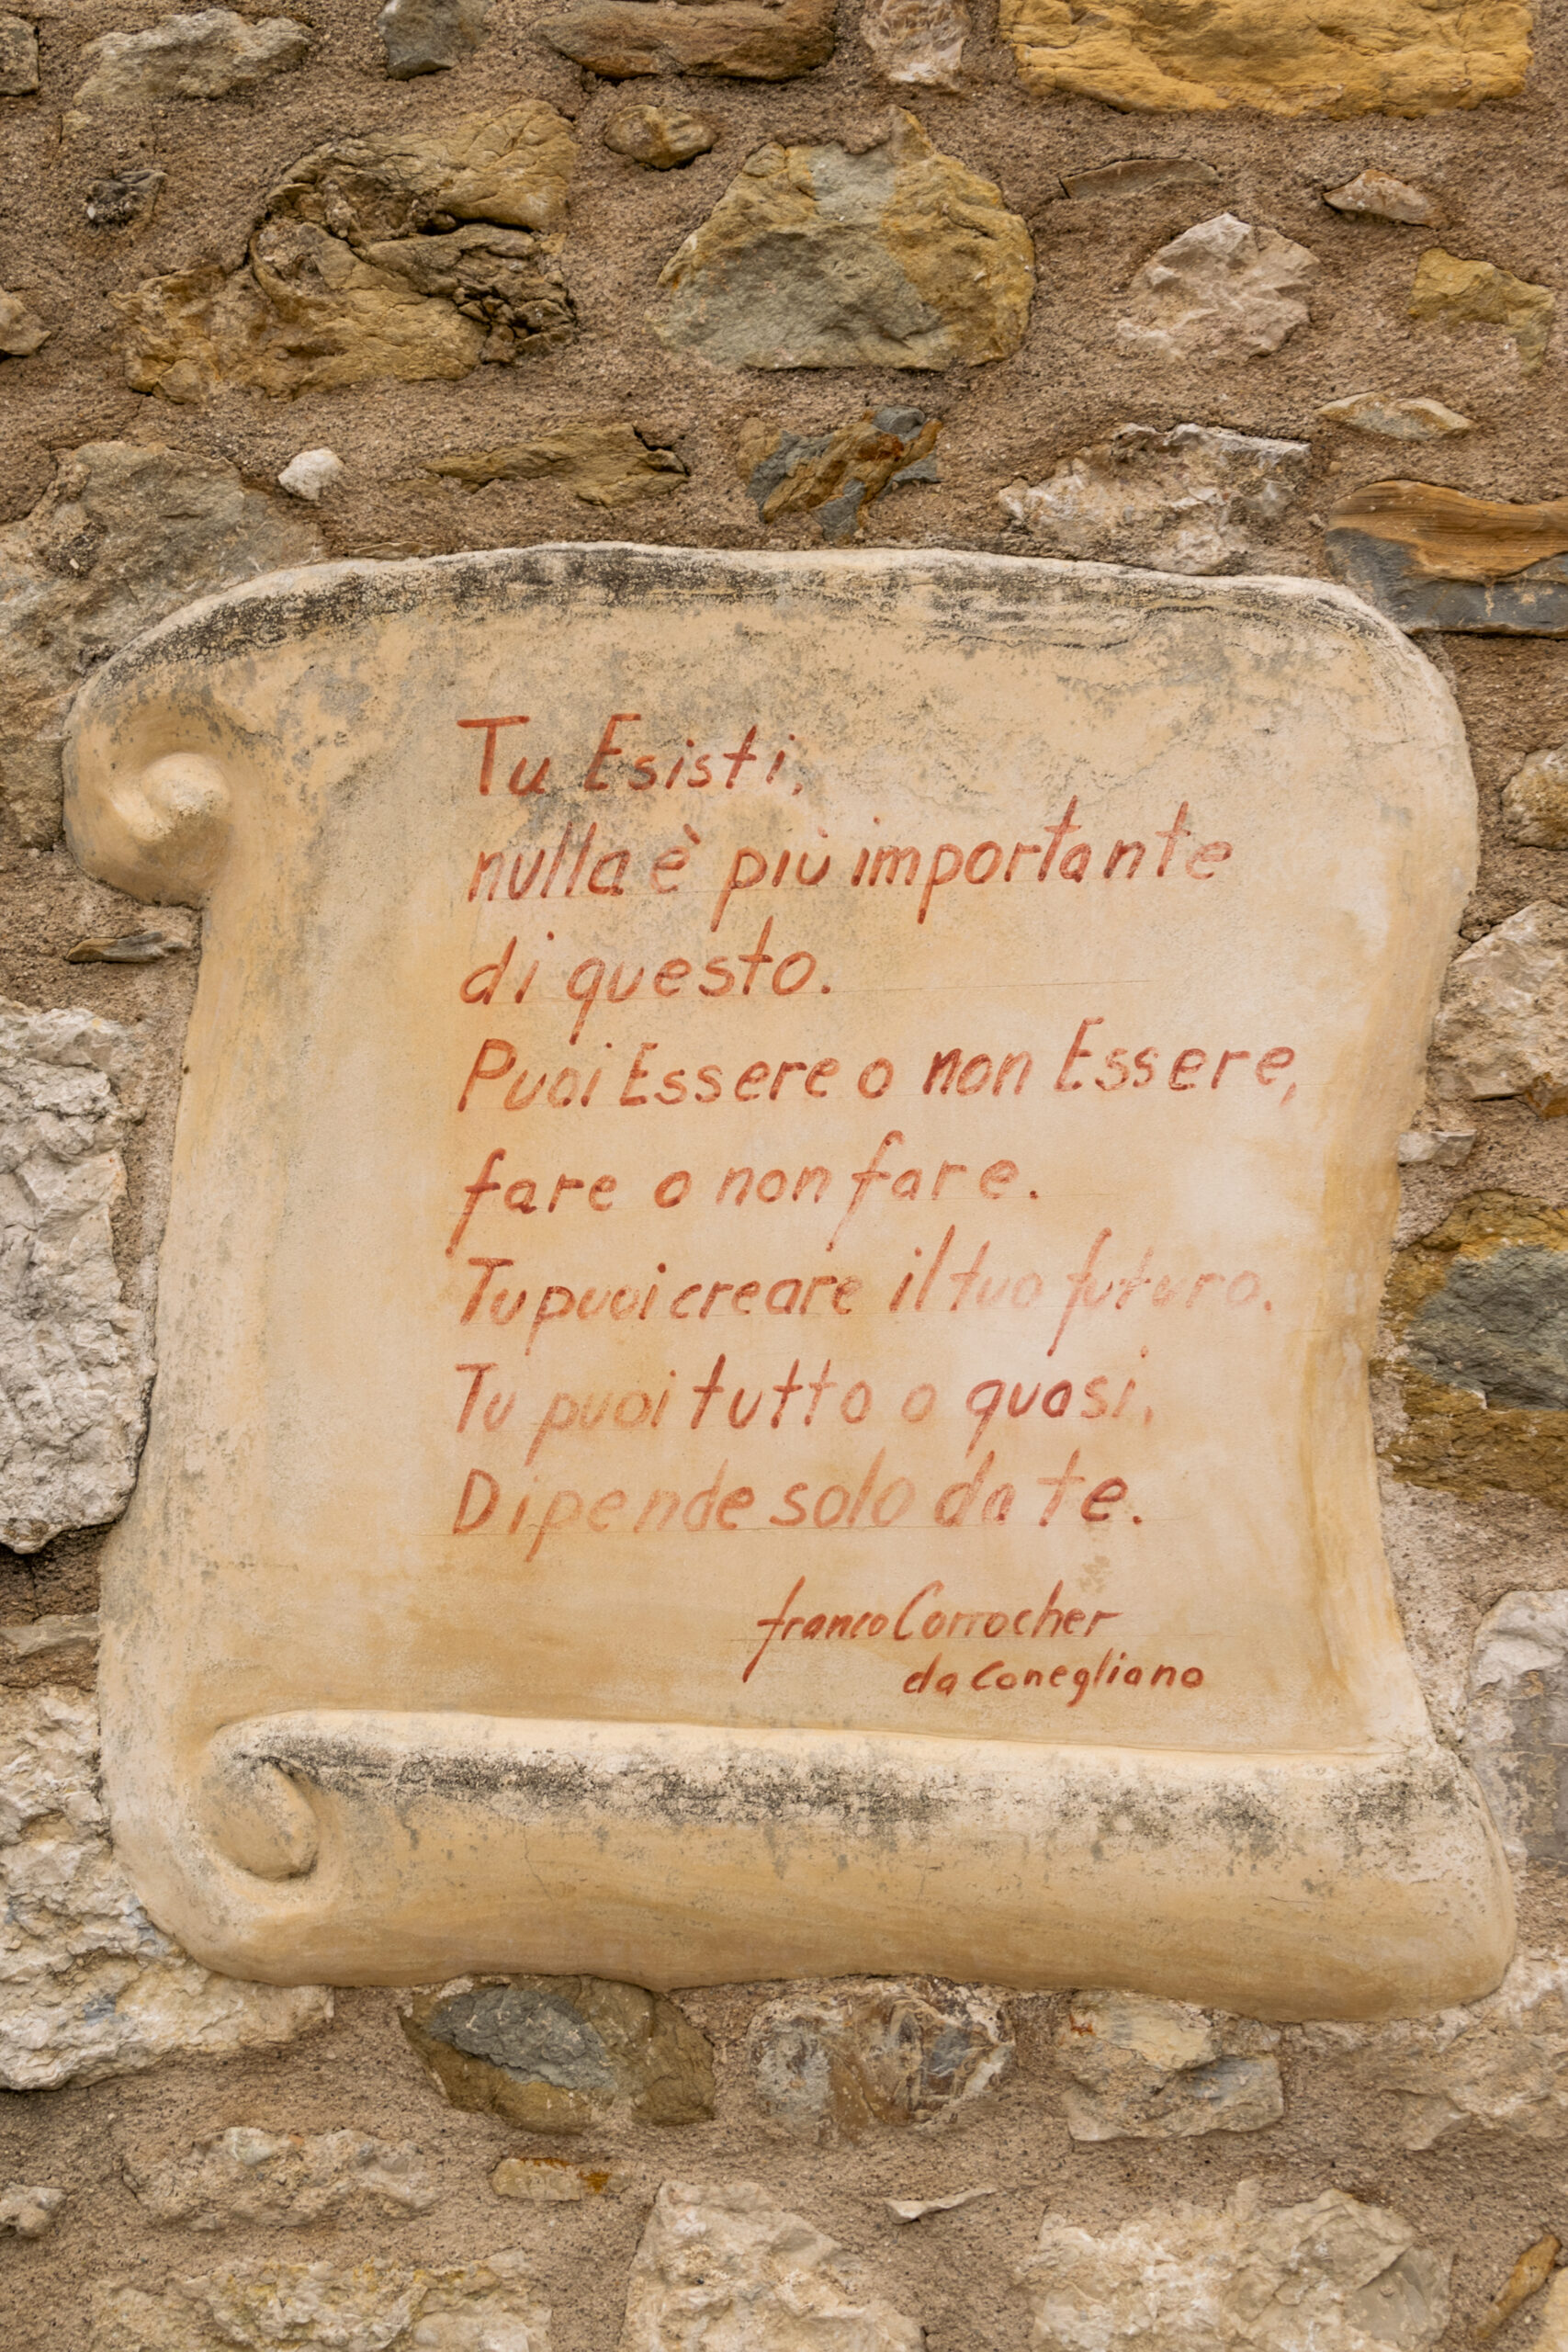 Tu Esisti,
nulla è più importante
di questo.
Puoi Essere o non Essere,
fare o non fare.
Tu puoi creare il tuo futuro.
Tu puoi tutto o quasi.
Dipende solo da te.
franco Corrocher
da Conegliano